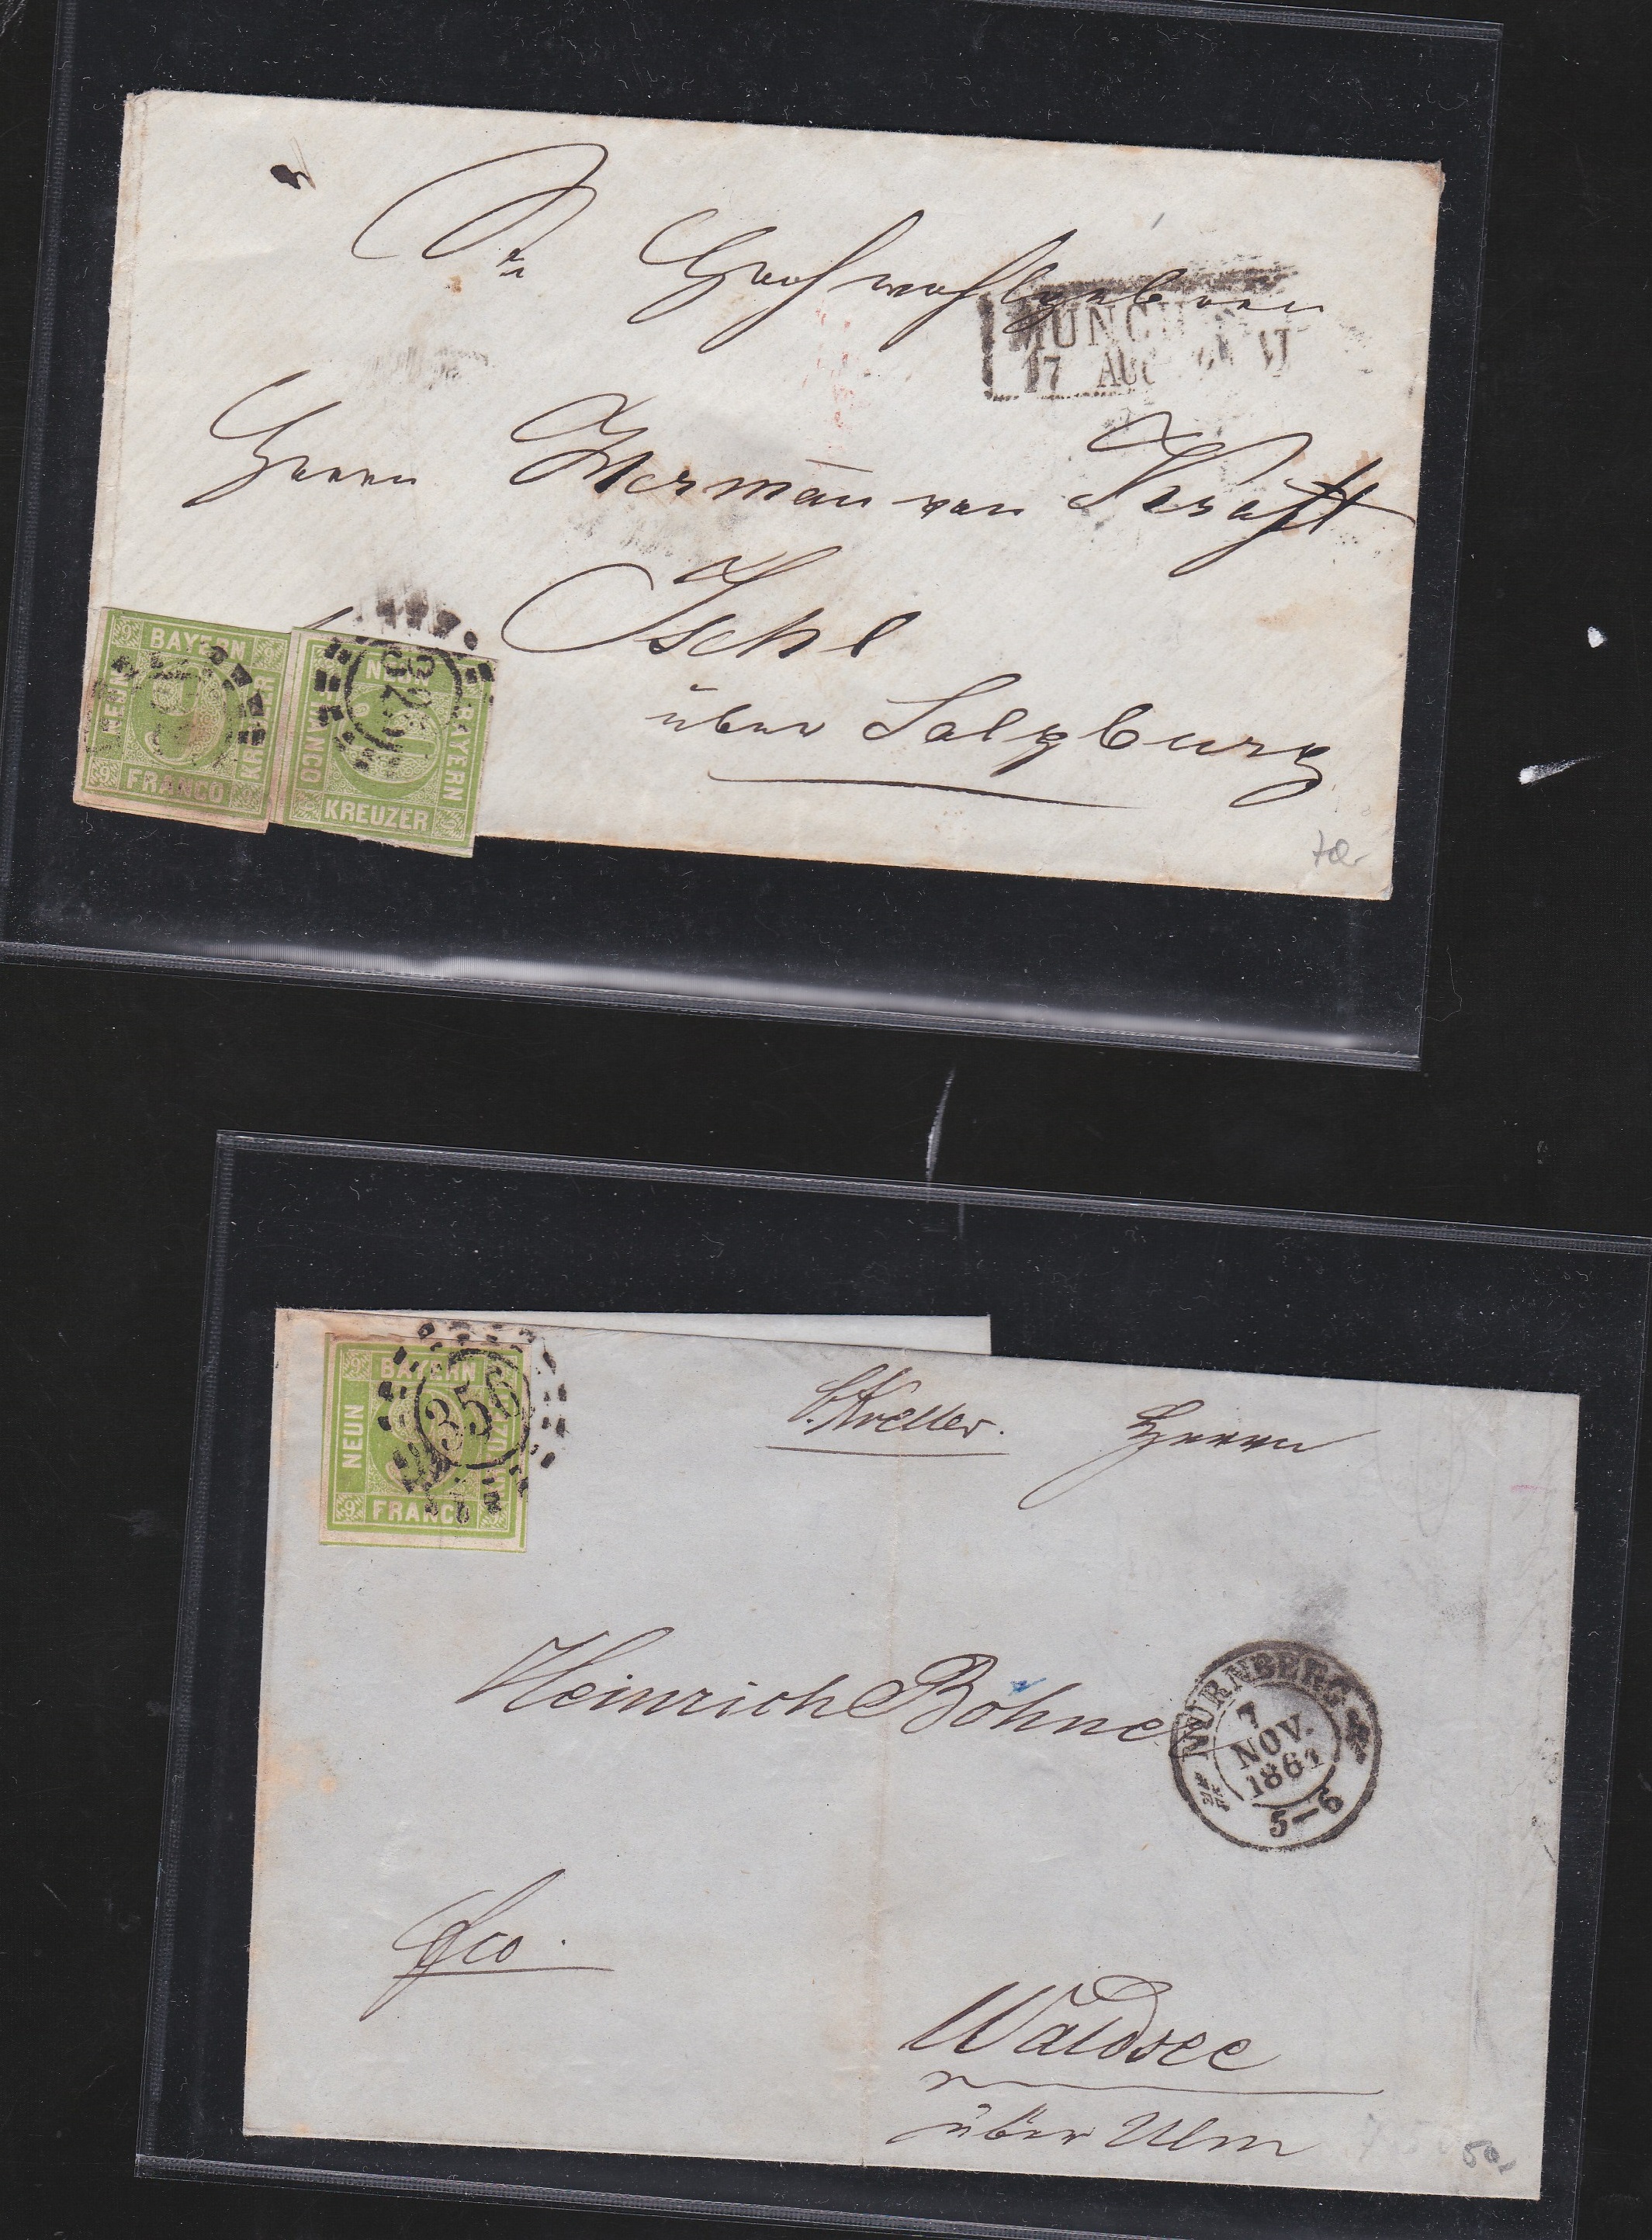 Sr Hochwohlgeboren
MÜNCHEN
17 AUG VI
Herrn Herman von Kraft
Ischl
über Salzburg
9 BAYERN
NEUN
KREUZER
FRANCO
NEUN
FRANCO
BAYERN
KREUZER
325
70-
BAYERN
NEUN
KREUZER
FRANCO
356
Herrn
Heinrich Bohner
NÜRNBERG
7
NOV.
1861
5-6
fco.
Waldsee
über Ulm
50-